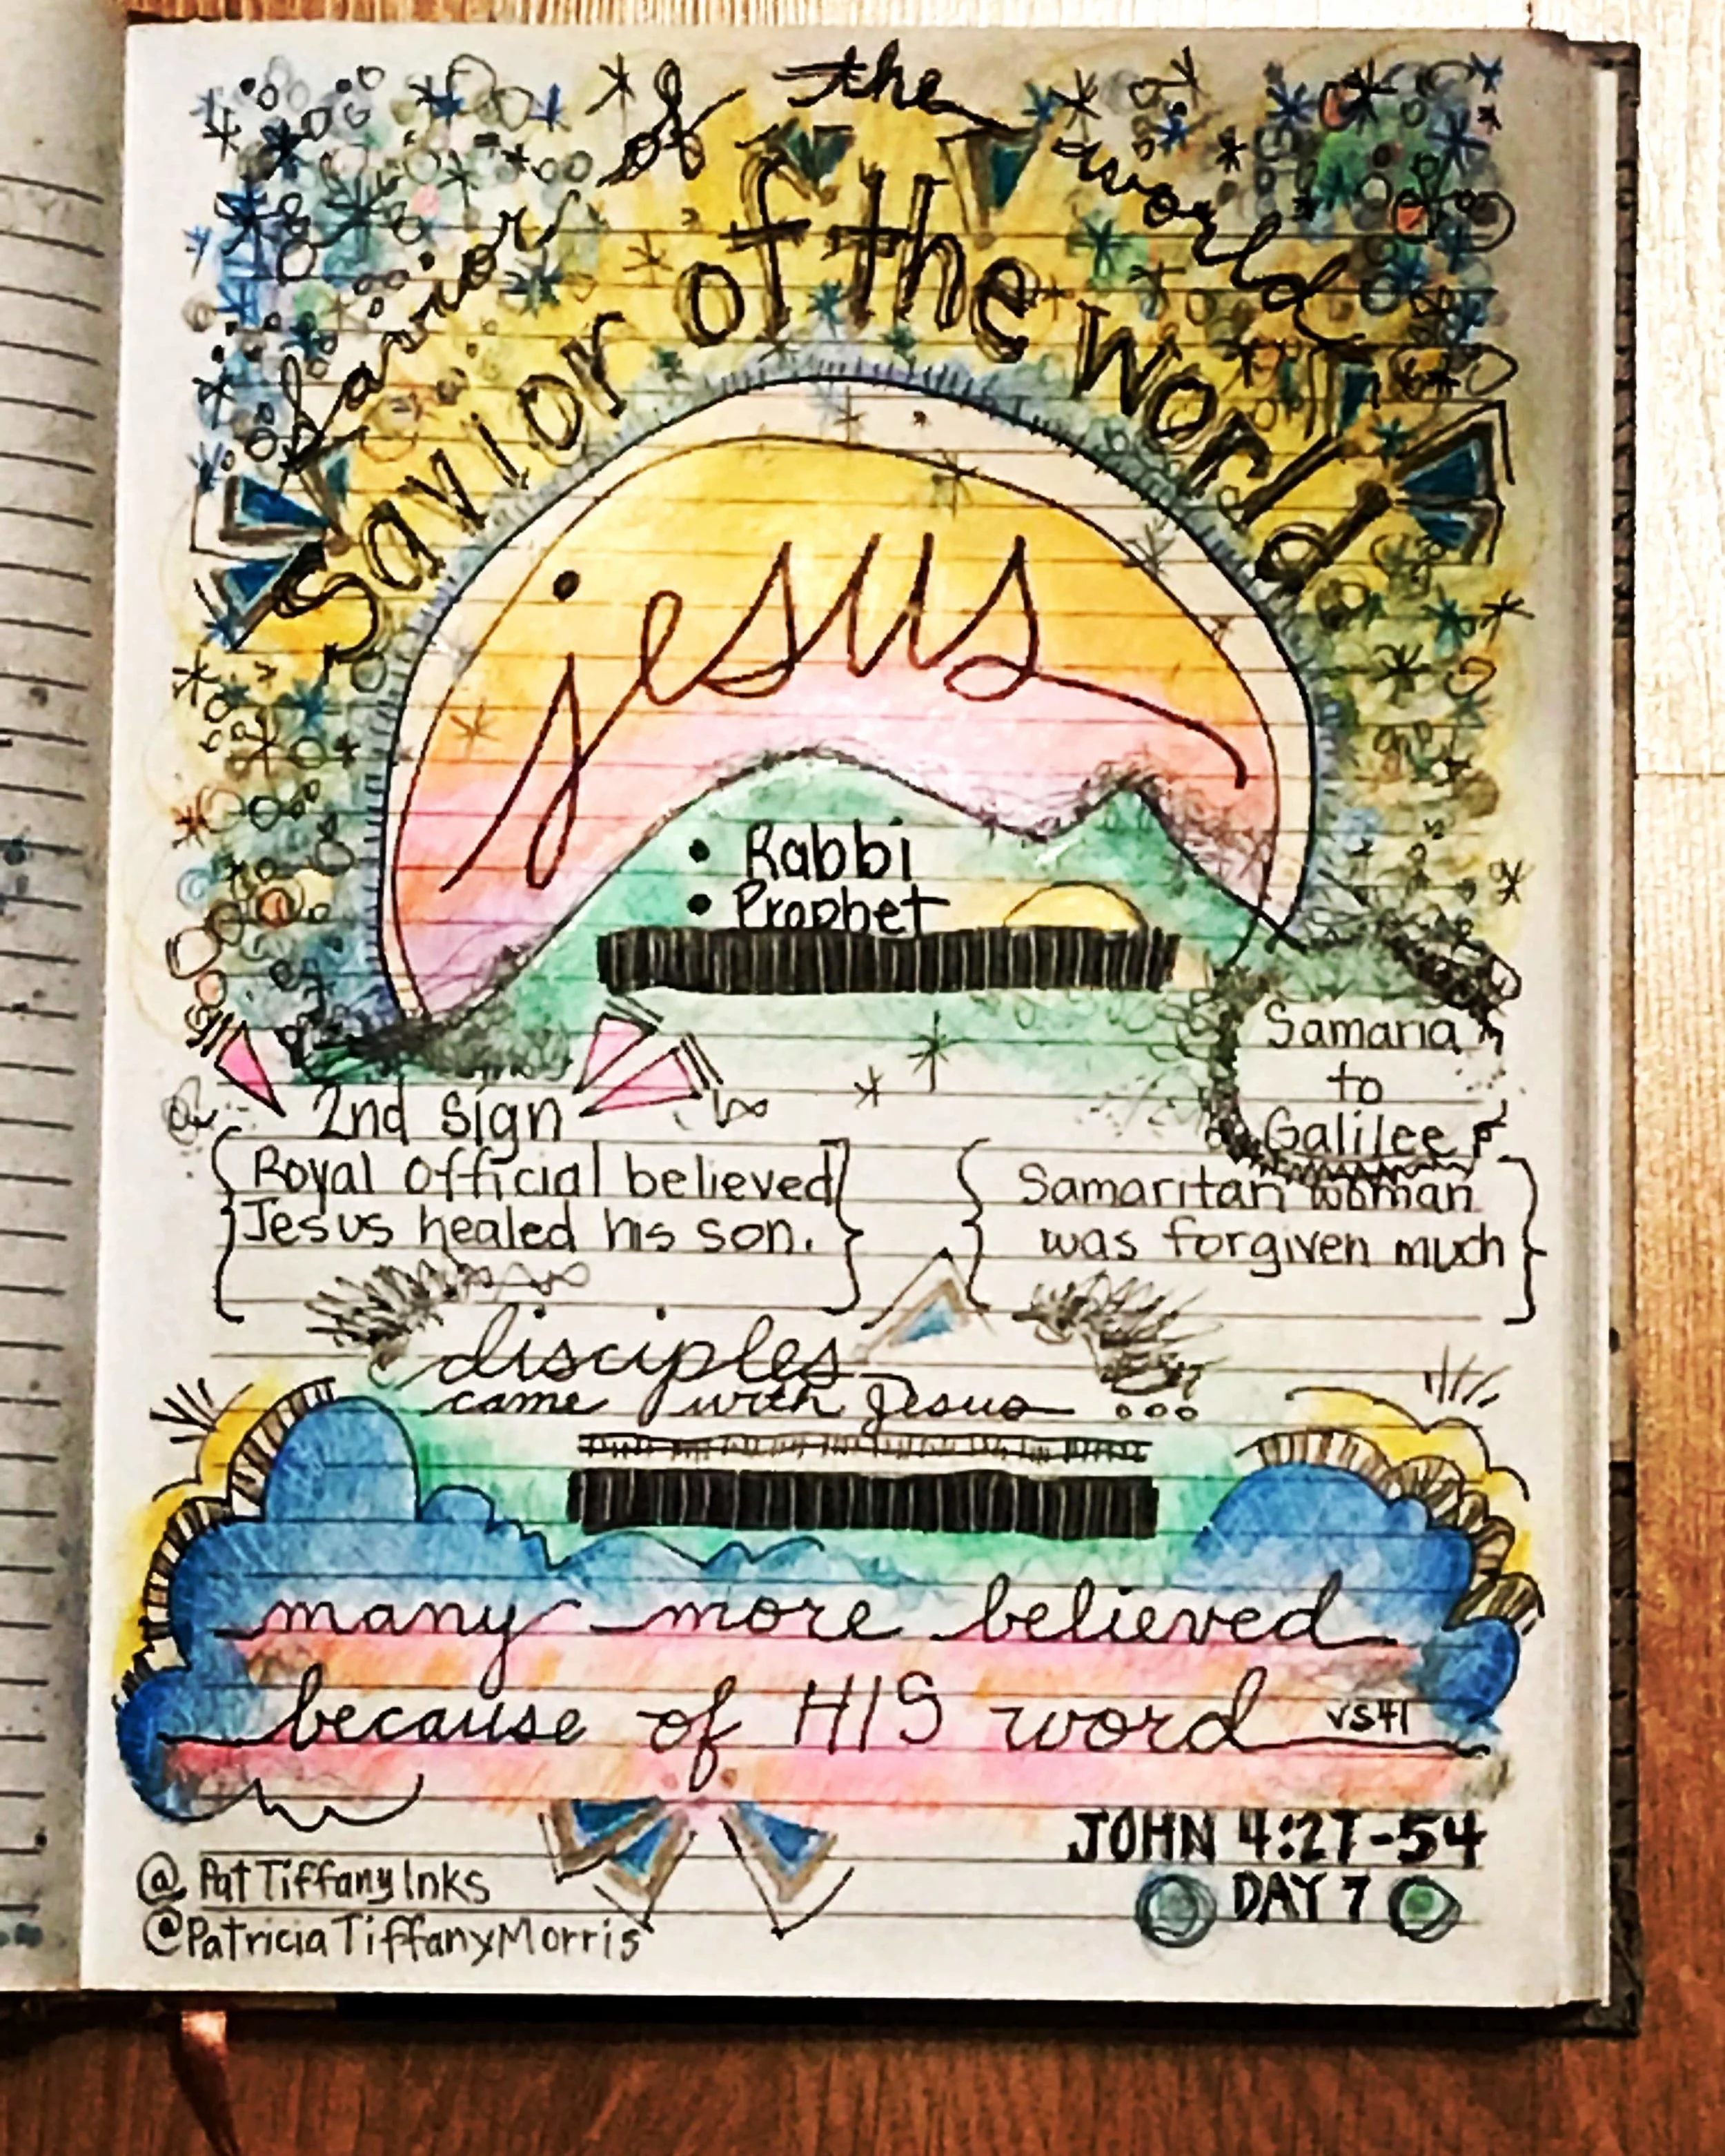 Savior of the world
Savior of the World
jesus
• Rabbi
• Prophet
Samaria
to
Galilee
2nd sign
Royal Official believed
Jesus healed his son.
Samaritan woman
was forgiven much
disciples
came with Jesus ...
many more believed
because of HIS word vs41
JOHN 4:27-54
DAY 7
@PatTiffanyInks
@PatriciaTiffanyMorris